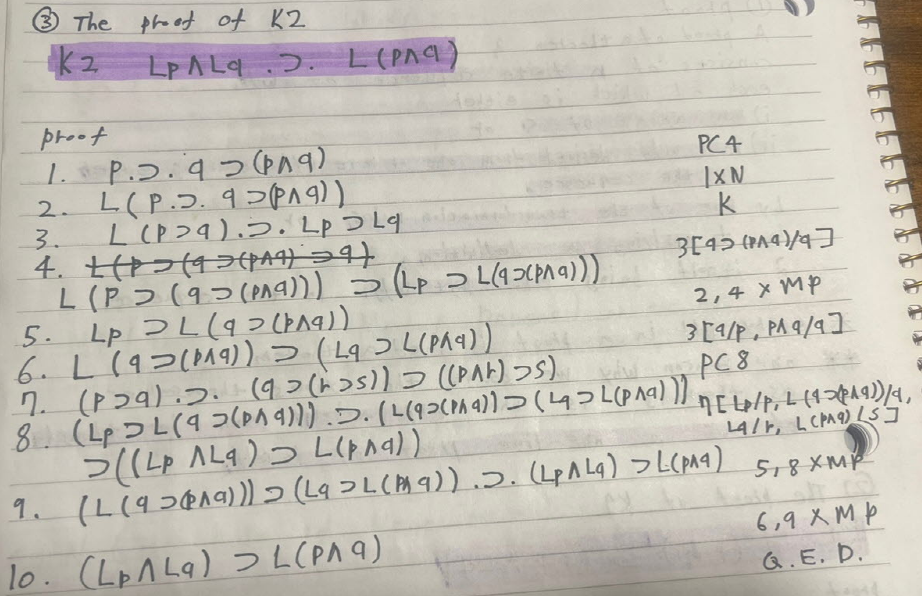 ③ The proof of K2
K2 Lp∧Lq .⊃. L(p∧q)
proof
1. p.⊃. q⊃(p∧q) PC4
2. L(p.⊃. q⊃(p∧q)) 1×N
3. L(p⊃q).⊃. Lp⊃Lq K
4. L(p⊃(q⊃(p∧q)⊃q)
L(p⊃(q⊃(p∧q))) ⊃(Lp⊃L(q⊃(p∧q))) 3[q⊃(p∧q)/q]
5. Lp⊃L(q⊃(p∧q)) 2,4×MP
6. L(q⊃(p∧q))⊃(Lq⊃L(p∧q)) 3[q/p, p∧q/q]
7. (p⊃q).⊃. (q⊃(r⊃s))⊃((p∧r)⊃s) PC8
8. (Lp⊃L(q⊃(p∧q))).⊃.(L(q⊃(p∧q))⊃(Lq⊃L(p∧q))) 7[Lp/p, L(q⊃(p∧q))/q,
⊃((Lp∧Lq)⊃L(p∧q)) Lq/r, L(p∧q)/s]
9. (L(q⊃(p∧q)))⊃(Lq⊃L(p∧q)).⊃. (Lp∧Lq)⊃L(p∧q) 5,8×MP
10. (Lp∧Lq)⊃L(p∧q) 6,9×MP
Q.E.D.